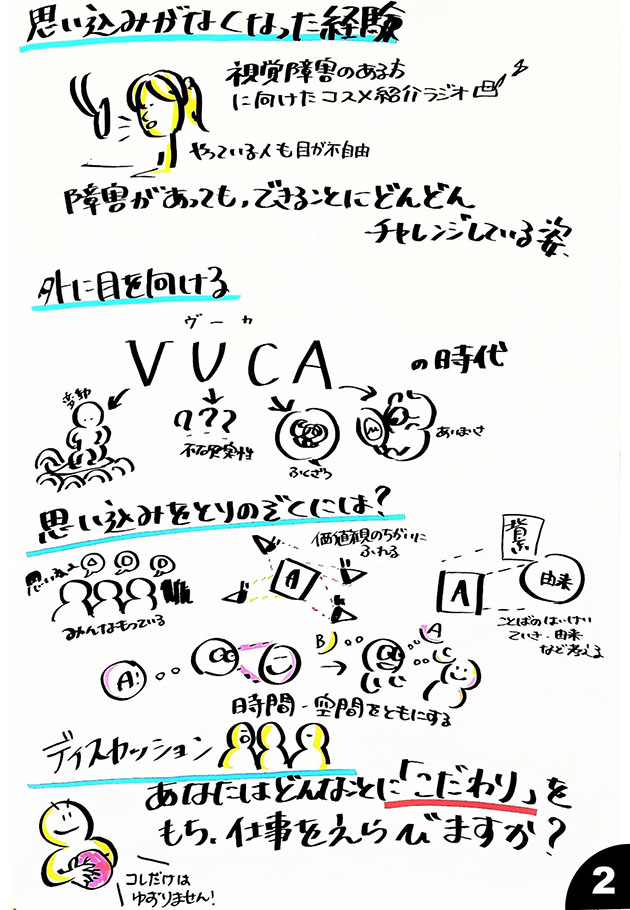 思い込みがなくなった経験
視覚障害のある方
に向けたコスメ紹介ラジオ
やっている人も目が不自由
障害があっても、できることにどんどん
チャレンジしている姿、
外に目を向ける
ヴーカ
VUCA の時代
変動
???
不確実性
ふくざつ
あいまいさ
思い込みをとりのぞくには?
思い込み
みんなもっている
価値観のちがいに
ふれる
A
背景
由来
A
ことばのはいけい
ていぎ・由来
など考える
A!
B
A
時間・空間をともにする
ディスカッション
あなたはどんなことに「こだわり」を
もち、仕事をえらびますか?
コレだけは
ゆずりません!
2